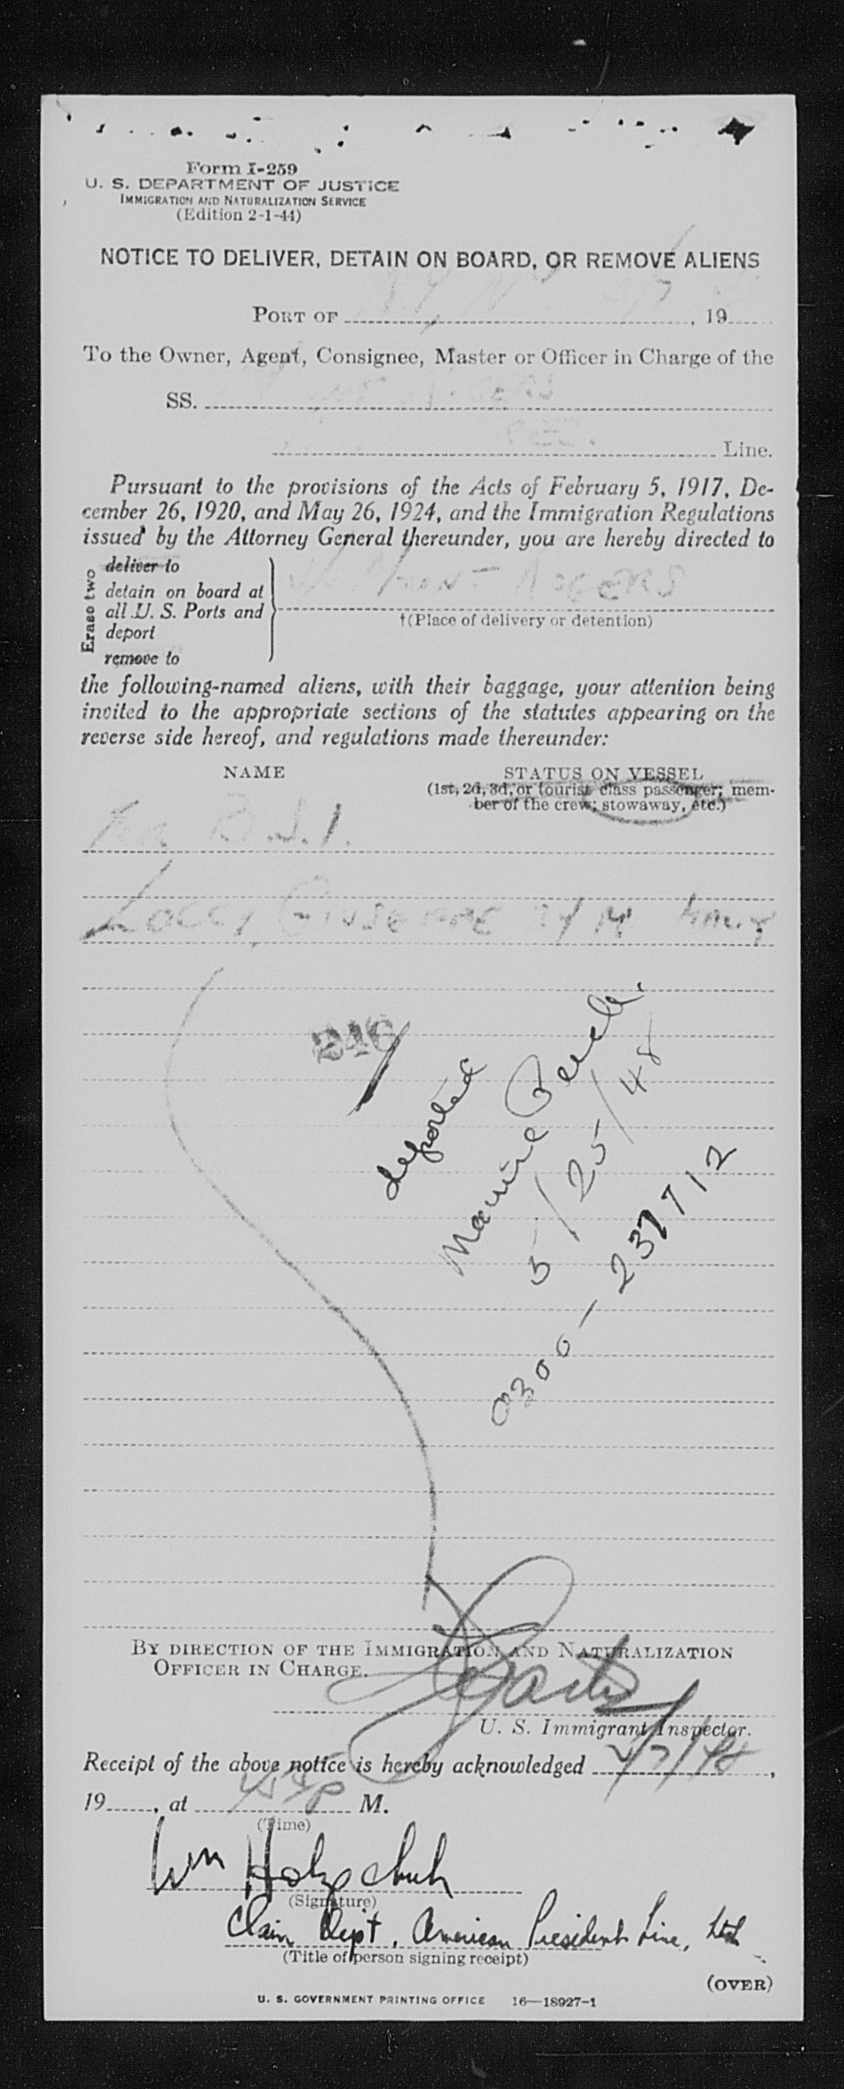 Form I-259
U. S. DEPARTMENT OF JUSTICE
IMMIGRATION AND NATURALIZATION SERVICE
(Edition 2-1-44)
NOTICE TO DELIVER, DETAIN ON BOARD, OR REMOVE ALIENS
PORT OF , 19
To the Owner, Agent, Consignee, Master or Officer in Charge of the
SS.
Line.
Pursuant to the provisions of the Acts of February 5, 1917, De-
cember 26, 1920, and May 26, 1924, and the Immigration Regulations
issued by the Attorney General thereunder, you are hereby directed to
Erase two
deliver to
detain on board at
all U. S. Ports and
deport
remove to
ROGERS
†(Place of delivery or detention)
the following-named aliens, with their baggage, your attention being
invited to the appropriate sections of the statutes appearing on the
reverse side hereof, and regulations made thereunder:
NAME STATUS ON VESSEL
(1st, 2d, 3d, or tourist class passenger; mem-
ber of the crew; stowaway, etc.)
B.S.I.
GIUSEPPE M ITALY
246
deported
Marine Perch.
5/25/48
0300-237712
BY DIRECTION OF THE IMMIGRATION AND NATURALIZATION
OFFICER IN CHARGE.
U. S. Immigrant Inspector.
Receipt of the above notice is hereby acknowledged ,
19 , at M.
(Time)
Wm
(Signature)
Claim Dept, American President Line, Ltd
(Title of person signing receipt)
(OVER)
U. S. GOVERNMENT PRINTING OFFICE 16—18927-1